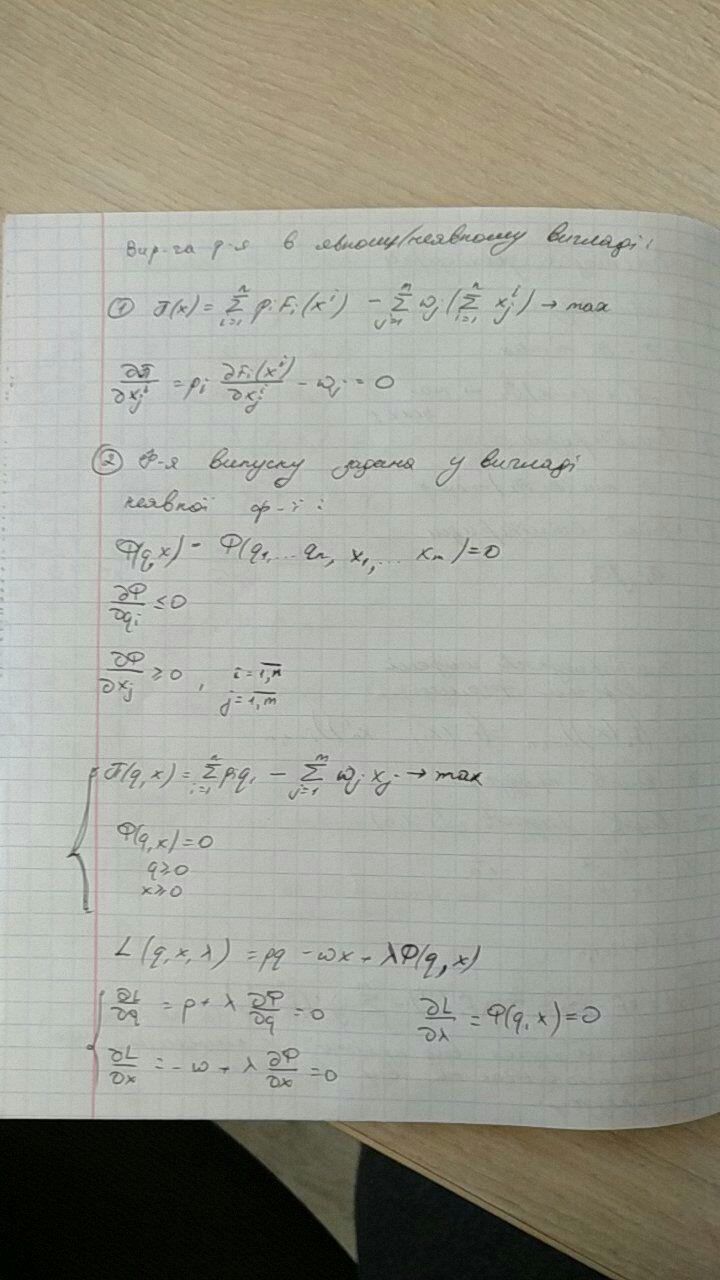 Вир-га ф-я в явному/неявному вигляді:
① π(x) = Σ_{i=1}^{n} p_i F_i(x^i) - Σ_{j=1}^{m} w_j (Σ_{i=1}^{n} x_j^i) → max
∂π/∂x_j^i = p_i ∂F_i(x^i)/∂x_j^i - w_j = 0
② Ф-я випуску задана у вигляді
неявної ф-ї:
Φ(q,x) = Φ(q_1,... q_n, x_1,... x_m) = 0
∂Φ/∂q_i ≤ 0
∂Φ/∂x_j ≥ 0, i = \overline{1,n} j = \overline{1,m}
π(q,x) = Σ_{i=1}^{n} p_i q_i - Σ_{j=1}^{m} w_j x_j → max
Φ(q,x) = 0
q ≥ 0
x ≥ 0
L(q,x,λ) = pq - wx + λΦ(q,x)
∂L/∂q = p + λ ∂Φ/∂q = 0 ∂L/∂λ = Φ(q,x) = 0
∂L/∂x = -w + λ ∂Φ/∂x = 0